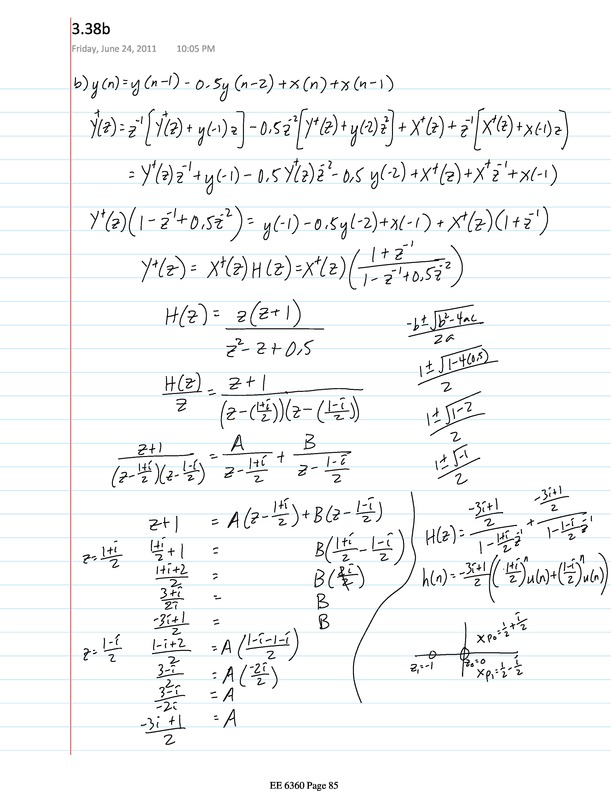 3.38b
Friday, June 24, 2011 10:05 PM
b) y(n) = y(n-1) - 0.5y(n-2) + x(n) + x(n-1)
Y⁺(z) = z⁻¹[Y⁺(z) + y(-1)z] - 0.5z⁻²[Y⁺(z) + y(-2)z²] + X⁺(z) + z⁻¹[X⁺(z) + x(-1)z]
= Y⁺(z)z⁻¹ + y(-1) - 0.5Y⁺(z)z⁻² - 0.5y(-2) + X⁺(z) + X⁺z⁻¹ + x(-1)
Y⁺(z)(1 - z⁻¹ + 0.5z⁻²) = y(-1) - 0.5y(-2) + x(-1) + X⁺(z)(1 + z⁻¹)
Y⁺(z) = X⁺(z)H(z) = X⁺(z)((1 + z⁻¹)/(1 - z⁻¹ + 0.5z⁻²))
H(z) = z(z+1)/(z² - z + 0.5)
H(z)/z = (z+1)/((z - (1+i)/2)(z - (1-i)/2))
(z+1)/((z - (1+i)/2)(z - (1-i)/2)) = A/(z - (1+i)/2) + B/(z - (1-i)/2)
(-b ± √(b² - 4ac))/2a
(1 ± √(1 - 4(0.5)))/2
(1 ± √(1-2))/2
(1 ± √-1)/2
z+1 = A(z - (1+i)/2) + B(z - (1-i)/2)
z = (1+i)/2 (1+i)/2 + 1 = B((1+i)/2 - (1-i)/2)
(1+i+2)/2 = B(2i/2)
(3+i)/2i = B
(-3i+1)/2 = B
z = (1-i)/2 (1-i+2)/2 = A((1-i-1-i)/2)
(3-i)/2 = A(-2i/2)
(3-i)/-2i = A
(-3i+1)/2 = A
H(z) = ((-3i+1)/2)/(1 - (1+i)/2 z⁻¹) + ((-3i+1)/2)/(1 - (1-i)/2 z⁻¹)
h(n) = (-3i+1)/2 (((1+i)/2)ⁿ u(n) + ((1-i)/2)ⁿ u(n))
x p₀ = 1/2 + i/2
z₁ = -1 z₀ = 0
x p₁ = 1/2 - i/2
EE 6360 Page 85